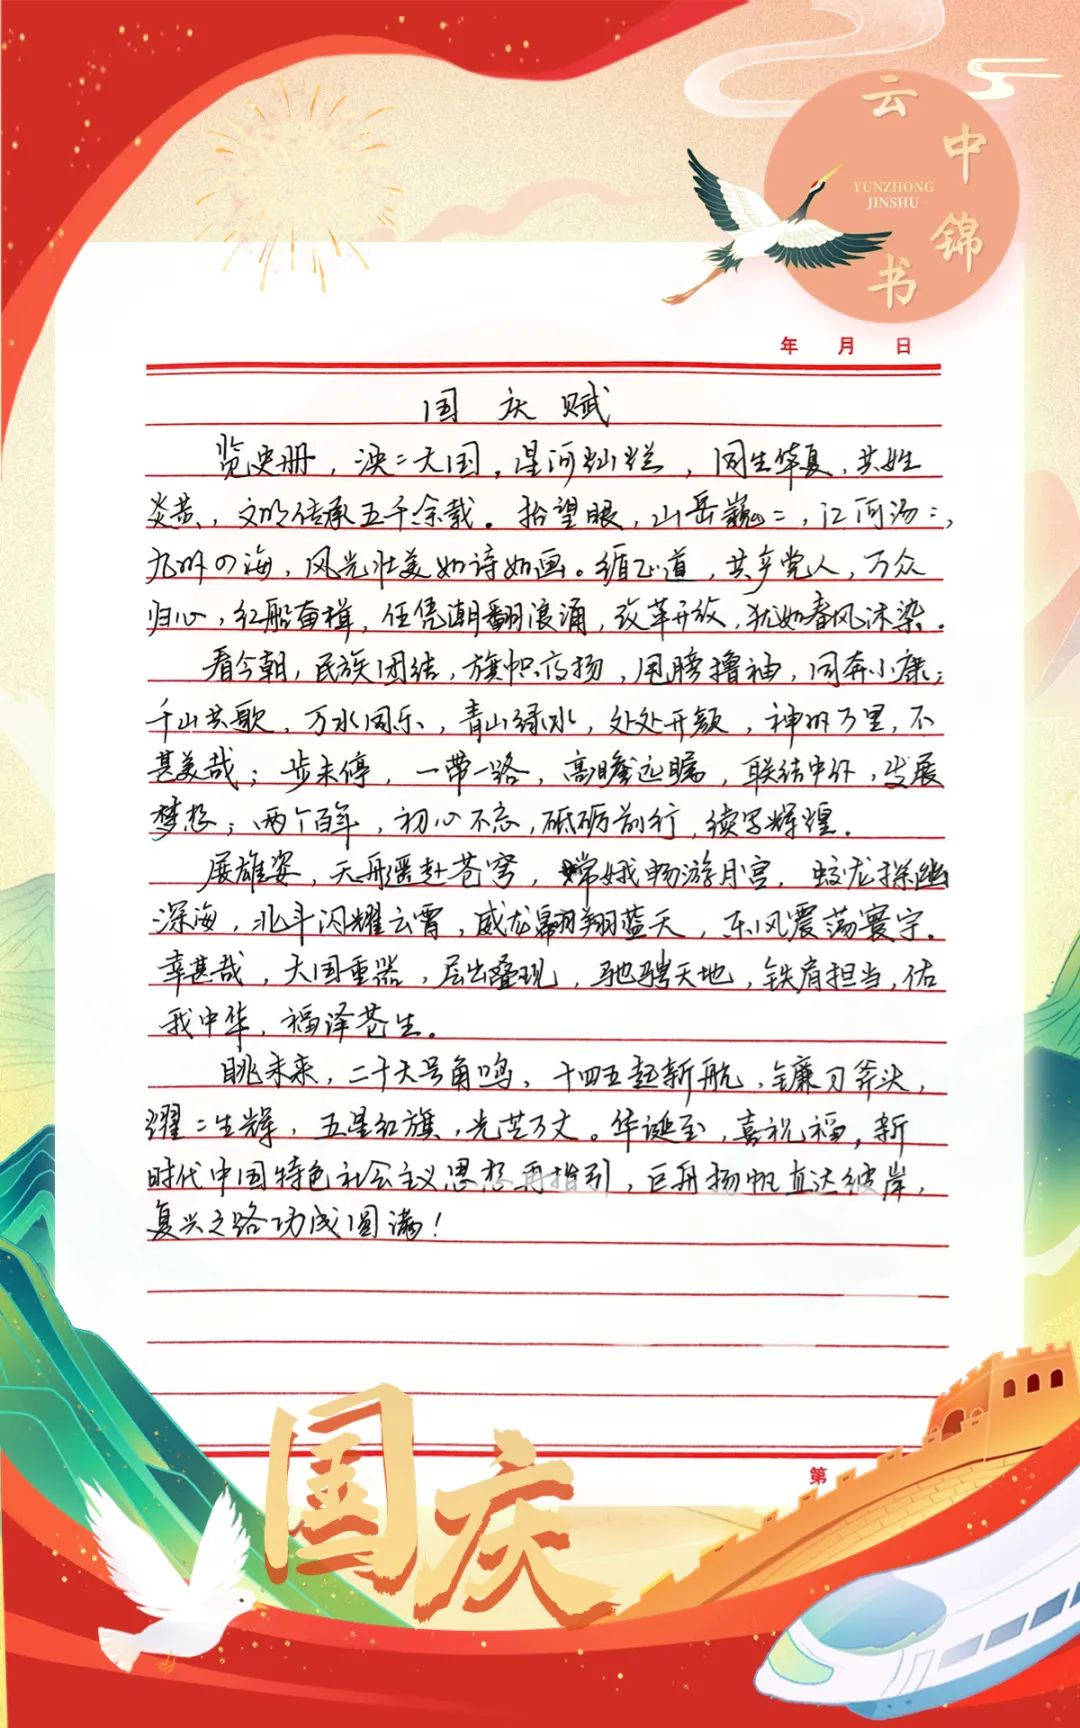 云中锦书
YUNZHONG
JINSHU
年 月 日
国庆赋
览史册，泱二大国。星河灿烂，同生华夏，共姓
炎黄，文明传承五千余载。抬望眼，山岳巍二，江河汤二，
九州四海，风光壮美如诗如画。循正道，共产党人，万众
归心，红船奋楫，任凭潮翻浪涌，改革开放，犹如春风沐染。
看今朝，民族团结，旗帜高扬，甩膀撸袖，同奔小康；
千山共歌，万水同乐，青山绿水，处处开颜，神州万里，不
甚美哉；步未停，一带一路，高瞻远瞩，联结中外，发展
梦想；两个百年，初心不忘，砥砺前行，续写辉煌。
展雄姿，天舟遥赴苍穹，嫦娥畅游月宫，蛟龙探幽
深海，北斗闪耀云霄，威龙翱翔蓝天，东风震荡寰宇。
幸甚哉，大国重器，层出叠现，驰骋天地，铁肩担当，佑
我中华，福泽苍生。
眺未来，二十大号角鸣，十四五起新航，镰刀斧头，
耀二生辉，五星红旗，光芒万丈。华诞至，喜祝福，新
时代中国特色社会主义思想再指引，巨舟扬帆直达彼岸，
复兴之路功成圆满！
第
国庆